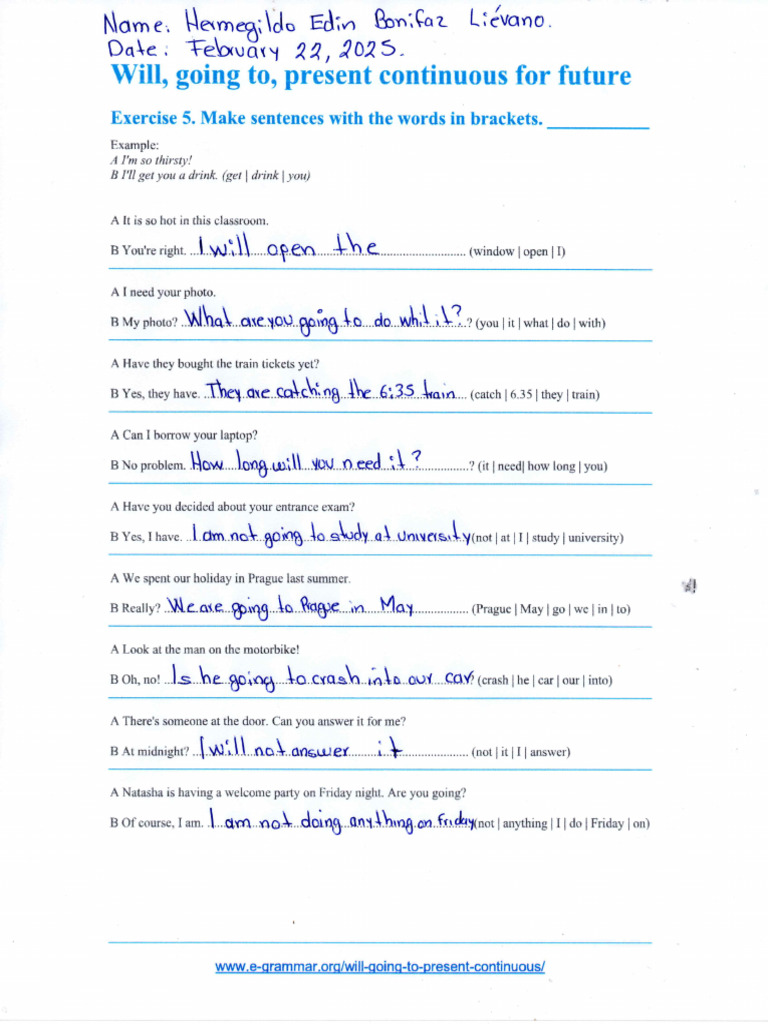 Name: Hermegildo Edin Bonifaz Liévano.
Date: February 22, 2025.
Will, going to, present continuous for future
Exercise 5. Make sentences with the words in brackets. __________
Example:
A I'm so thirsty!
B I'll get you a drink. (get | drink | you)
A It is so hot in this classroom.
B You're right. I will open the (window | open | I)
A I need your photo.
B My photo? What are you going to do whit it? ? (you | it | what | do | with)
A Have they bought the train tickets yet?
B Yes, they have. They are catching the 6:35 train (catch | 6.35 | they | train)
A Can I borrow your laptop?
B No problem. How long will you need it? ? (it | need| how long | you)
A Have you decided about your entrance exam?
B Yes, I have. I am not going to study at university (not | at | I | study | university)
A We spent our holiday in Prague last summer.
B Really? We are going to Prague in May (Prague | May | go | we | in | to)
A Look at the man on the motorbike!
B Oh, no! Is he going to crash into our car ? (crash | he | car | our | into)
A There's someone at the door. Can you answer it for me?
B At midnight? I will not answer it (not | it | I | answer)
A Natasha is having a welcome party on Friday night. Are you going?
B Of course, I am. I am not doing anything on Friday (not | anything | I | do | Friday | on)
www.e-grammar.org/will-going-to-present-continuous/